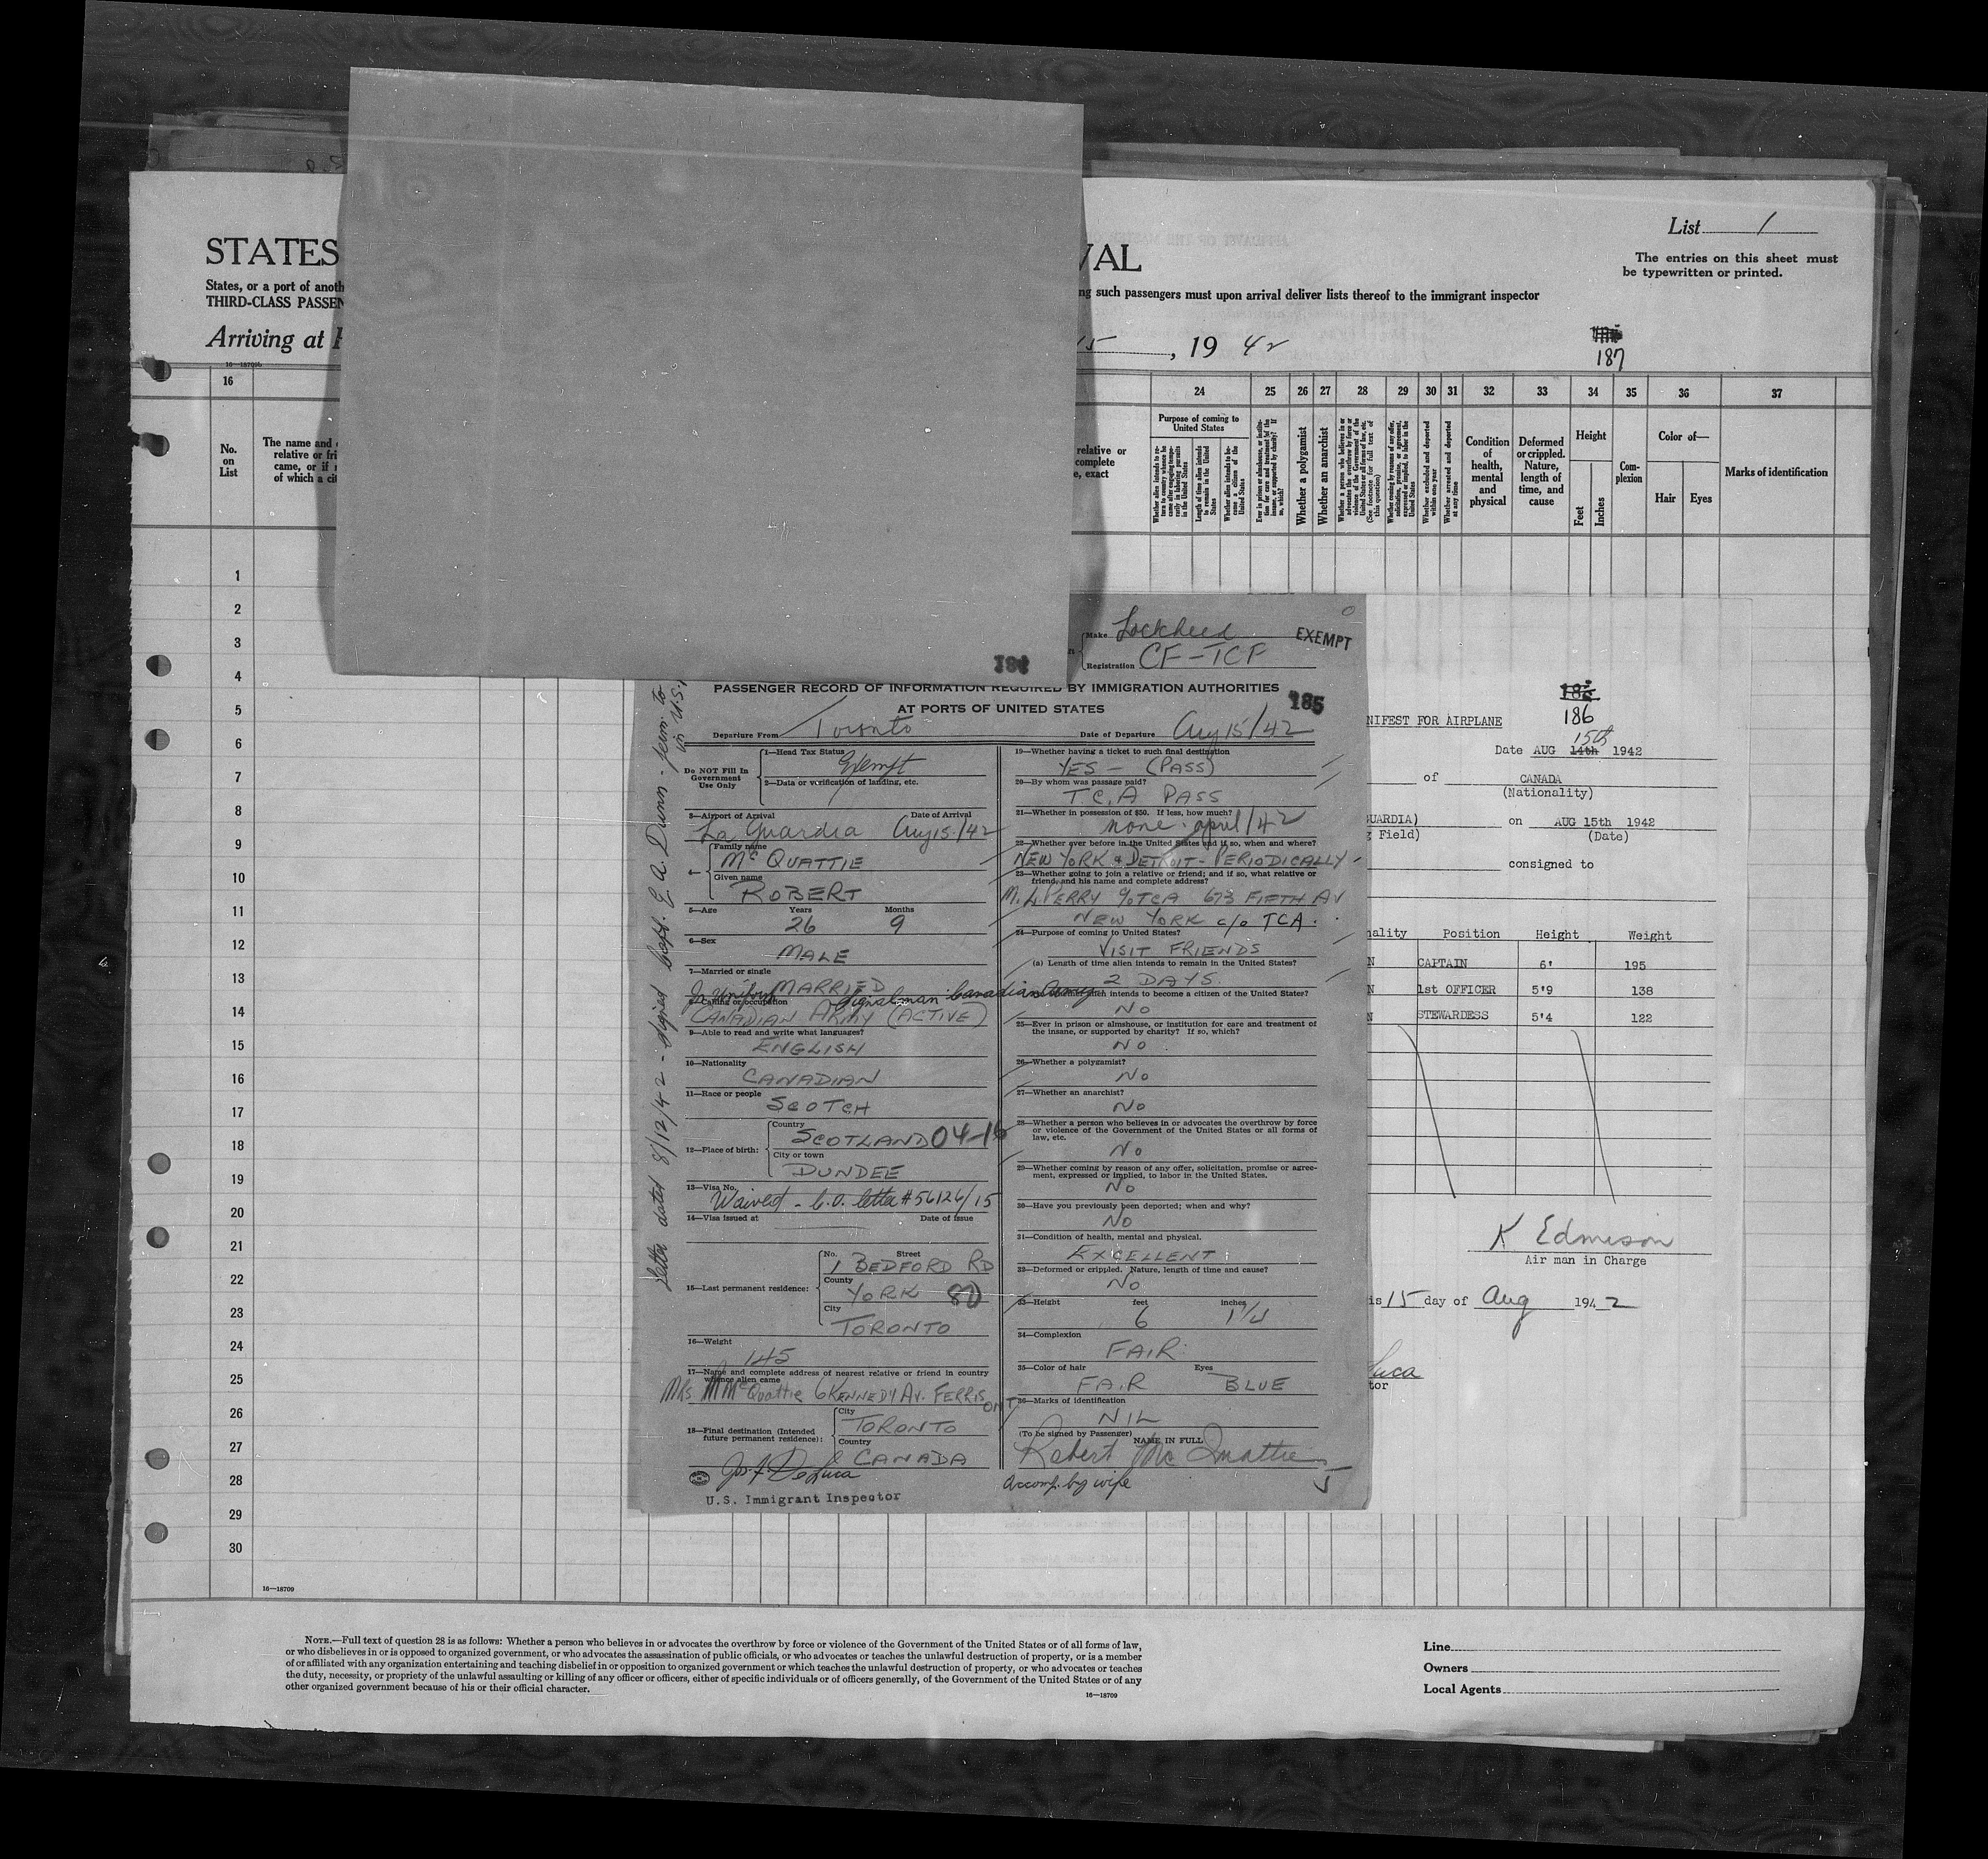 List 1
STATES
VAL
The entries on this sheet must
be typewritten or printed.
States, or a port of anoth
ng such passengers must upon arrival deliver lists thereof to the immigrant inspector
THIRD-CLASS PASSEN
Arriving at
15, 19 42
187
16—18709b
16
24 25 26 27 28 29 30 31 32 33 34 35 36 37
No.
on
List
The name and
relative or fri
came, or if
of which a cit
relative or
complete
e, exact
Purpose of coming to
United States
Whether a polygamist
Whether an anarchist
Whether excluded and deported
within one year
Whether arrested and deported
at any time
Condition
of
health,
mental
and
physical
Deformed
or crippled.
Nature,
length of
time, and
cause
Height
Feet
Inches
Com-
plexion
Color of—
Hair
Eyes
Marks of identification
1
2
3
4
5
6
7
8
9
10
11
12
13
14
15
16
17
18
19
20
21
22
23
24
25
26
27
28
29
30
16—18709
Make Lockheed
EXEMPT
Registration CF-TCF
PASSENGER RECORD OF INFORMATION REQUIRED BY IMMIGRATION AUTHORITIES
AT PORTS OF UNITED STATES
185
Departure From Toronto
Date of Departure Aug 15/42
Do NOT Fill In
Government
Use Only
1—Head Tax Status
Exempt
2—Data or verification of landing, etc.
3—Airport of Arrival Date of Arrival
La Guardia Aug 15/42
4— Family name
McQUATTIE
Given name
ROBERT
5—Age Years Months
26 9
6—Sex
MALE
7—Married or single
MARRIED
In Uniform Signalman Canadian Army
8—Calling or occupation
CANADIAN ARMY (ACTIVE)
9—Able to read and write what languages?
ENGLISH
10—Nationality
CANADIAN
11—Race or people
SCOTCH
12—Place of birth: Country
SCOTLAND 04-16
City or town
DUNDEE
13—Visa No.
Waived - C.O. letter #56126/15
14—Visa issued at Date of issue
15—Last permanent residence:
No. Street
1 BEDFORD RD
County
YORK 80
City
TORONTO
16—Weight
145
17—Name and complete address of nearest relative or friend in country
whence alien came
MRS. M McQuattie 6 KENNEDY AV. FERRIS ONT
18—Final destination (Intended
future permanent residence):
City
TORONTO
Country
CANADA
Jos. A. DeLuca
U.S. Immigrant Inspector
19—Whether having a ticket to such final destination
YES — (PASS)
20—By whom was passage paid?
T.C.A PASS
21—Whether in possession of $50. If less, how much?
none - april/42
22—Whether ever before in the United States and if so, when and where?
NEW YORK & DETROIT - PERIODICALLY
23—Whether going to join a relative or friend; and if so, what relative or
friend, and his name and complete address?
M. L. PERRY c/o TCA 673 FIFTH AV
NEW YORK c/o TCA.
24—Purpose of coming to United States?
VISIT FRIENDS
(a) Length of time alien intends to remain in the United States?
2 DAYS.
alien intends to become a citizen of the United States?
NO
25—Ever in prison or almshouse, or institution for care and treatment of
the insane, or supported by charity? If so, which?
NO
26—Whether a polygamist?
NO
27—Whether an anarchist?
NO
28—Whether a person who believes in or advocates the overthrow by force
or violence of the Government of the United States or all forms of
law, etc.
NO
29—Whether coming by reason of any offer, solicitation, promise or agree-
ment, expressed or implied, to labor in the United States.
NO
30—Have you previously been deported; when and why?
NO
31—Condition of health, mental and physical.
EXCELLENT
32—Deformed or crippled. Nature, length of time and cause?
NO
33—Height feet inches
6 1/4
34—Complexion
FAIR
35—Color of hair Eyes
FAIR BLUE
36—Marks of identification
NIL
(To be signed by Passenger) NAME IN FULL
Robert McQuattie
Accomp. by wife
letter dated 8/12/42 - signed Capt. E. A. Dunn - perm. to
in U.S.
NIFEST FOR AIRPLANE
186
15th
Date AUG 14th 1942
of CANADA
(Nationality)
GUARDIA) on AUG 15th 1942
Field) (Date)
consigned to
ality Position Height Weight
N CAPTAIN 6' 195
N 1st OFFICER 5'9 138
N STEWARDESS 5'4 122
K Edmison
Air man in Charge
is 15 day of Aug 1942
Luca
tor
NOTE.—Full text of question 28 is as follows: Whether a person who believes in or advocates the overthrow by force or violence of the Government of the United States or of all forms of law,
or who disbelieves in or is opposed to organized government, or who advocates the assassination of public officials, or who advocates or teaches the unlawful destruction of property, or is a member
of or affiliated with any organization entertaining and teaching disbelief in or opposition to organized government or which teaches the unlawful destruction of property, or who advocates or teaches
the duty, necessity, or propriety of the unlawful assaulting or killing of any officer or officers, either of specific individuals or of officers generally, of the Government of the United States or of any
other organized government because of his or their official character.
16—18709
Line
Owners
Local Agents